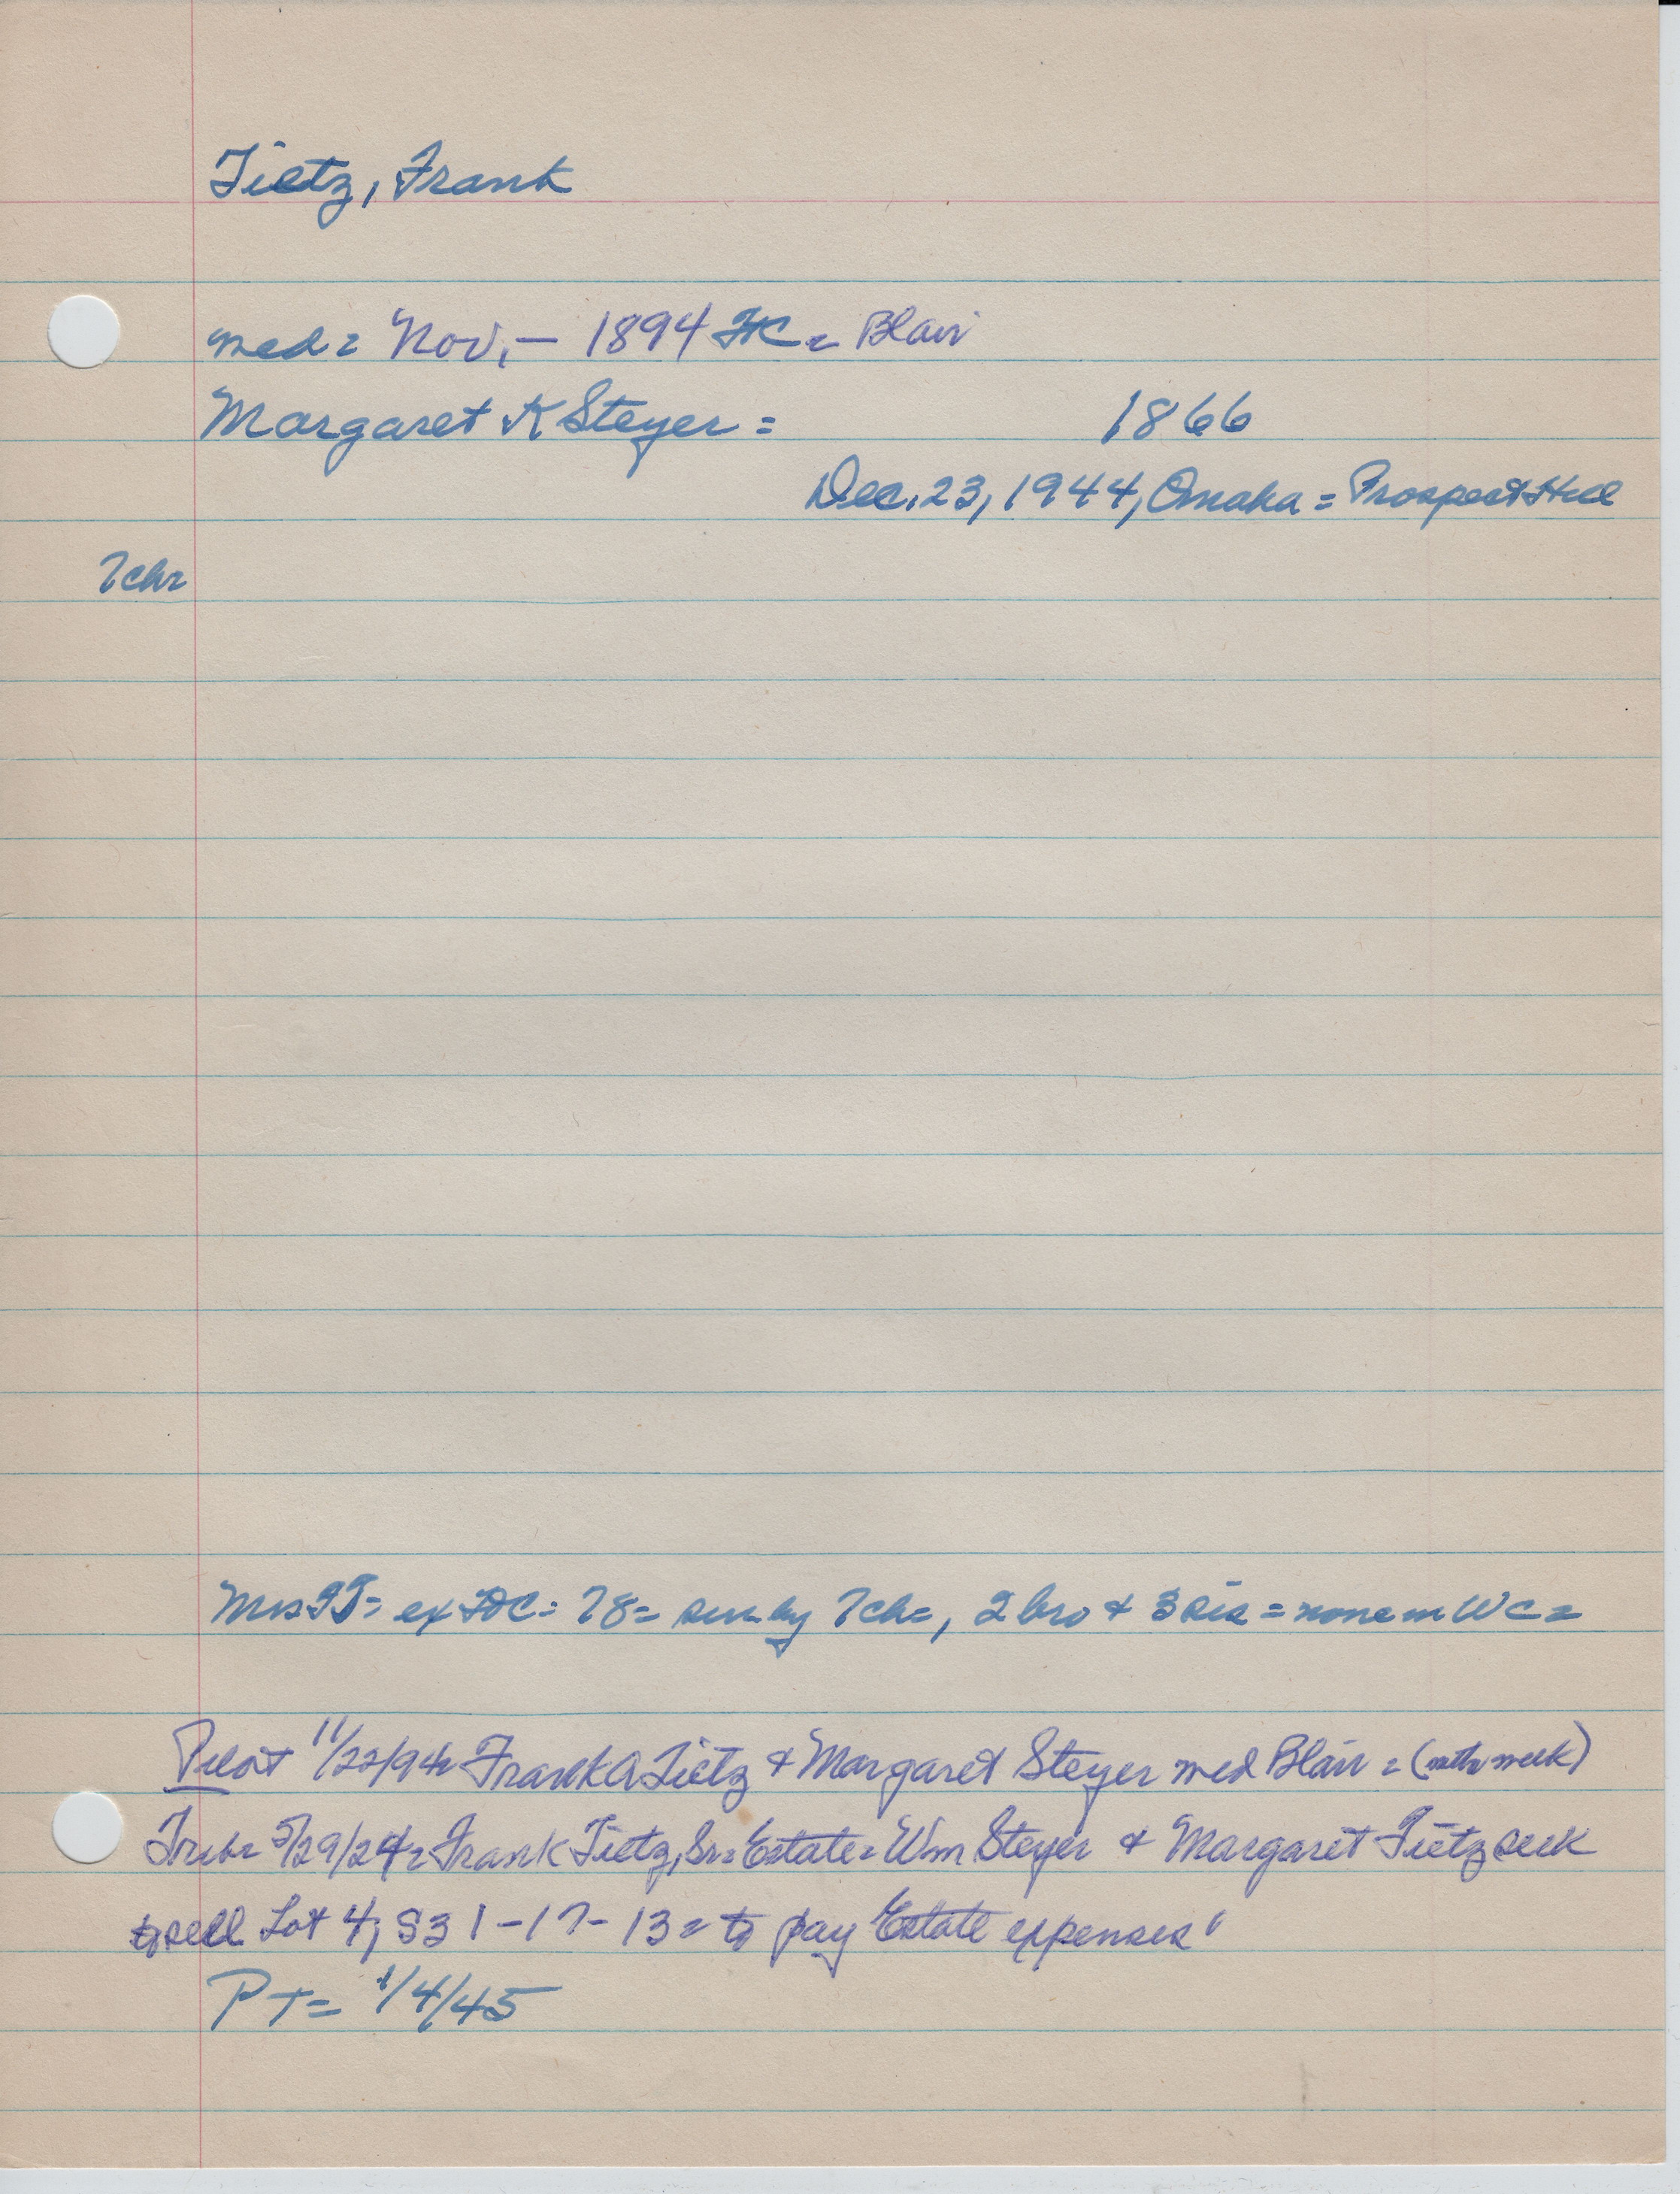 Tietz, Frank
med = Nov. – 1894 = Blair
Margaret K Steyer =
1866
Dec. 23, 1944, Omaha = Prospect Hill
7ch =
Mrs FT = ex = 78 = sur by 7ch =, 2 bro + 3 sis = none in WC =
Pilot 11/22/94 = Frank A Tietz + Margaret Steyer med Blair = (this week)
Trib = 5/29/24 = Frank Tietz, Sr = Estate = Wm Steyer + Margaret Tietz seek
to sell Lot 4, S31-17-13 = to pay Estate expenses"
PT = 1/4/45